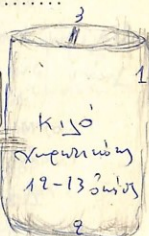 3
1
Κιλό
χωρητικότης
12-13 ὀκάδες
2